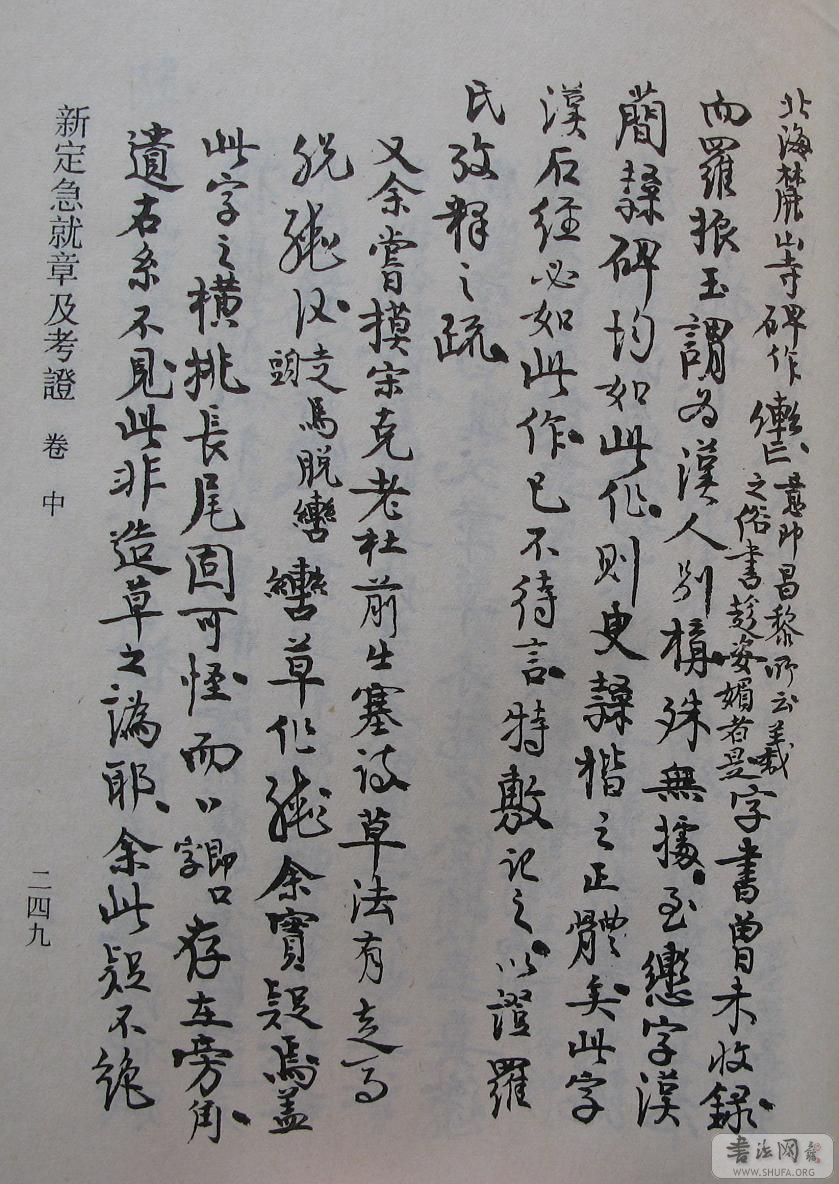 北海麓山寺碑作 意即昌黎所云羲之俗書趁姿媚者是字書曾未收錄
而羅振玉謂為漢人別構殊無據至戀字漢
簡隸碑均如此作則叟隸楷之正體矣此字
漢石經必如此作已不待言特敷記之以證羅
氏攷釋之疏
又余嘗摸宋克老杜前出塞詩草法有走馬
脱 走馬頭脫轡 轡草作 余實疑焉蓋
此字之橫挑長尾固可怪而 即口字存左旁角
遺右糸不見此非造草之譌耶余此疑不絶
新定急就章及考證 卷中
二四九
書法网
WWW.SHUFA.ORG